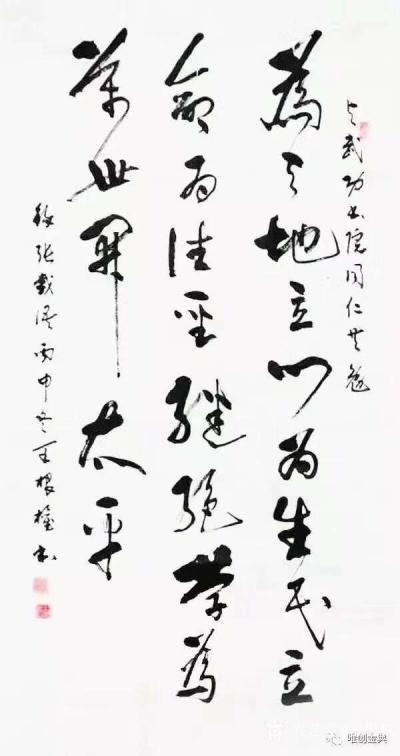 与武功书院同仁共勉
為天地立心为生民立
命为往圣継绝学為
萬世開太平
録张载语丙申冬王根权书
唯创金典